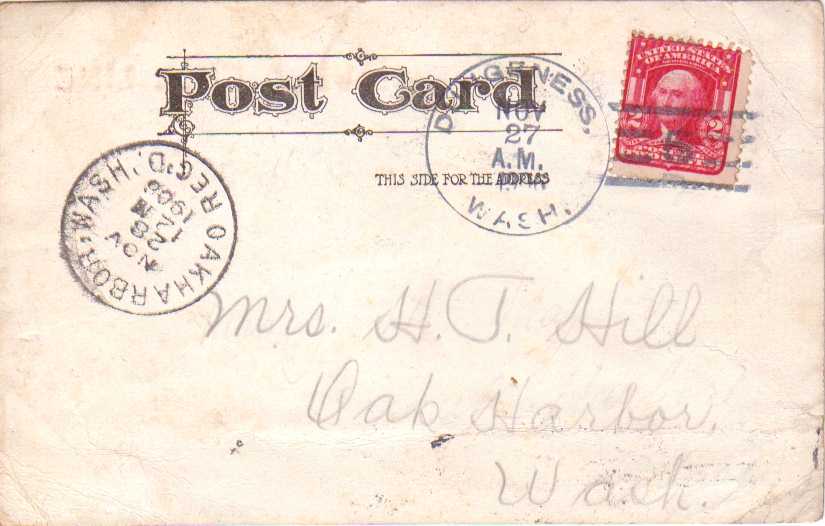 Post Card
THIS SIDE FOR THE ADDRESS
DUNGENESS,
NOV
27
A.M.
WASH.
UNITED STATES
OF AMERICA
2 2
OAKHARBOR, WASH. REC'D.
NOV
28
1 M
1906
Mrs. H. T. Hill
Oak Harbor.
Wash.